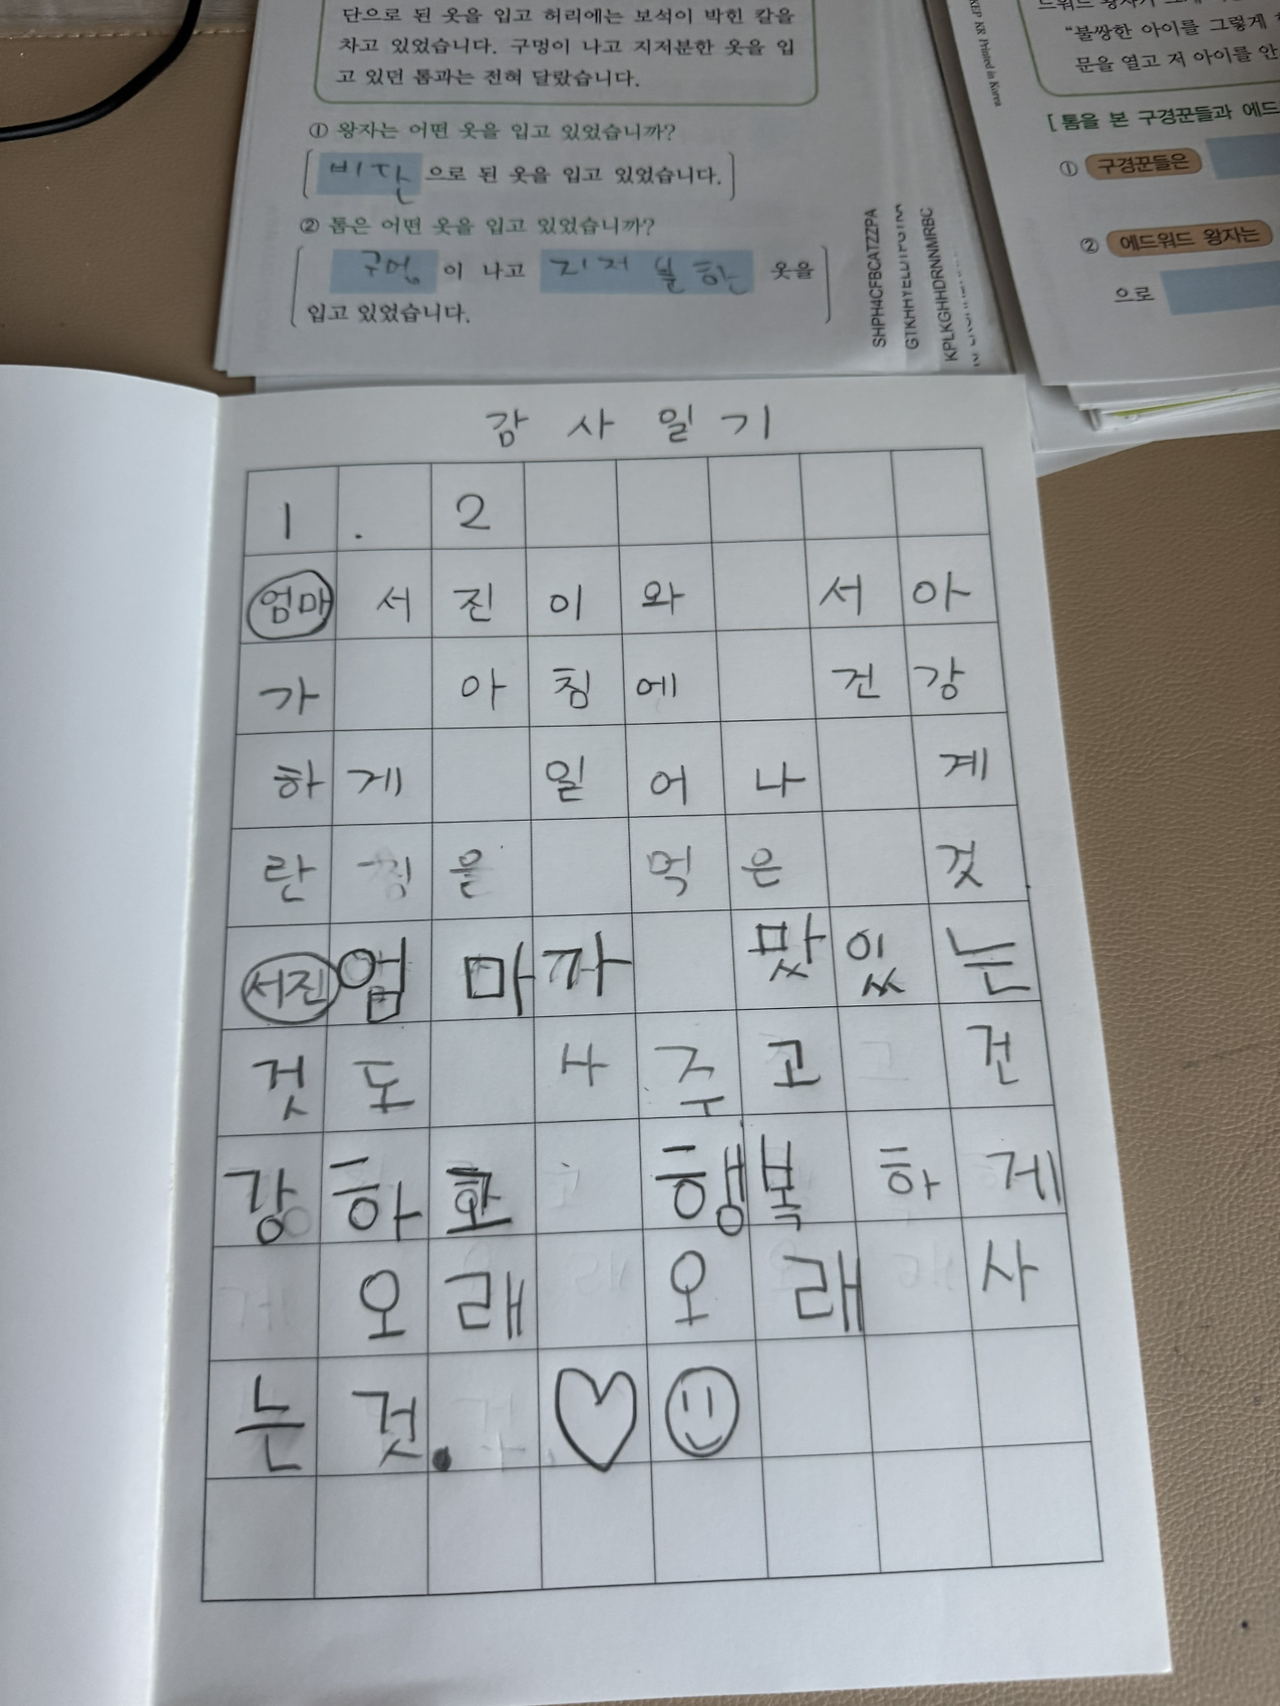 단으로 된 옷을 입고 허리에는 보석이 박힌 칼을
차고 있었습니다. 구멍이 나고 지저분한 옷을 입
고 있던 톰과는 전혀 달랐습니다.
① 왕자는 어떤 옷을 입고 있었습니까?
비단으로 된 옷을 입고 있었습니다.
② 톰은 어떤 옷을 입고 있었습니까?
구멍이 나고 지저분한 옷을
입고 있었습니다.
SHPH4CFBCATZZPA
KPLKGHHDRNNMRBC
KEP KR Printed in Korea
“불쌍한 아이를 그렇게
문을 열고 저 아이를 안
[톰을 본 구경꾼들과 에드
① 구경꾼들은
② 에드워드 왕자는
으로
감사일기
1.2
엄마 서진이와 서아
가 아침에 건강
하게 일어나 계
란찜을 먹은 것
서진 엄마까 맜있는
것도 사주고 건
강하고 행복하게
오래 오래 사
는 것.